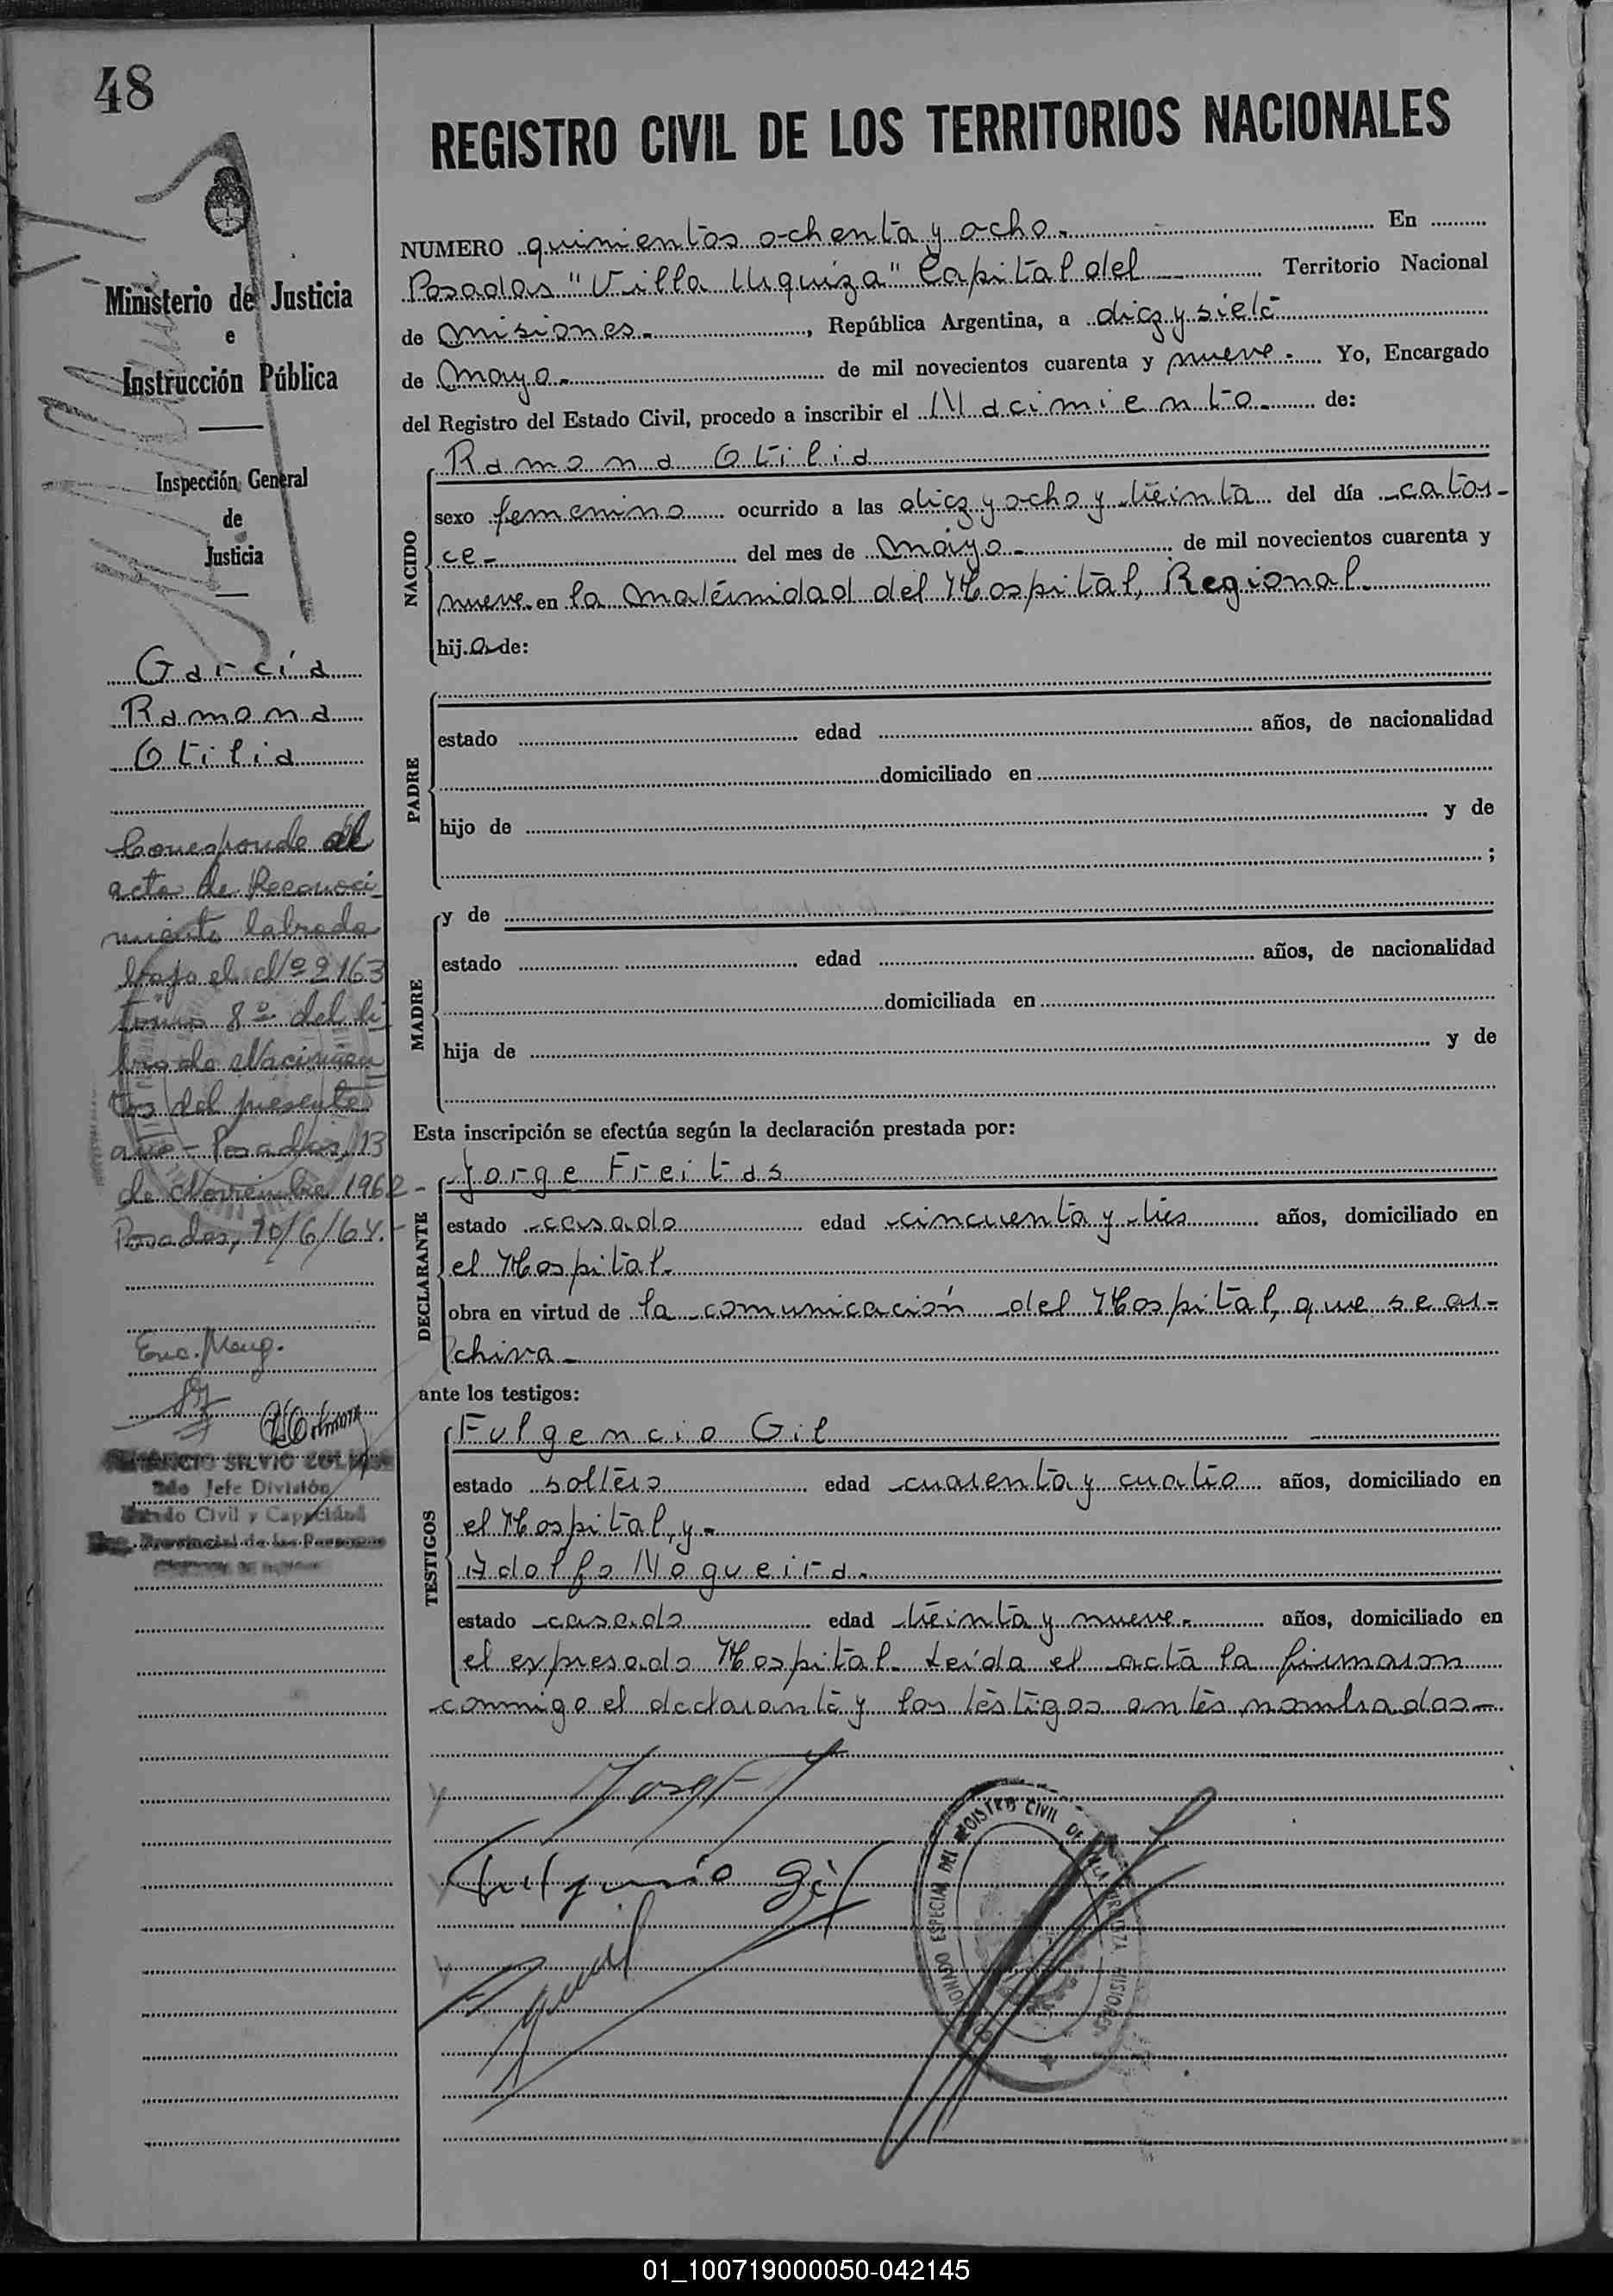 48
REGISTRO CIVIL DE LOS TERRITORIOS NACIONALES
Ministerio de Justicia
e
Instrucción Pública
Inspección General
de
Justicia
García
Ramona
Otilia
Corresponde al
acta de Reconoci
miento labrada
bajo el Nº 2163
tomo 8º del li
bro de Nacimien
tos del presente
año - Posadas, 13
de Noviembre 1962 -
Posadas, 10/6/64.-
Enc. Marg.
SILVIO
2do Jefe División
Estado Civil y Capacidad
Reg. Provincial de las Personas
NUMERO quinientos ochenta y ocho.- En
Posadas "Villa Urquiza" Capital del Territorio Nacional
de Misiones.- , República Argentina, a diez y siete
de Mayo.- de mil novecientos cuarenta y nueve.- Yo, Encargado
del Registro del Estado Civil, procedo a inscribir el Nacimiento.- de:
NACIDO
Ramona Otilia
sexo femenino ocurrido a las diez y ocho y treinta del día cator-
ce.- del mes de Mayo.- de mil novecientos cuarenta y
nueve. en la Maternidad del Hospital, Regional.
hija de:
PADRE
estado edad años, de nacionalidad
domiciliado en
hijo de y de
;
MADRE
y de
estado edad años, de nacionalidad
domiciliada en
hija de y de
Esta inscripción se efectúa según la declaración prestada por:
DECLARANTE
Jorge Freitas
estado casado edad cincuenta y tres años, domiciliado en
el Hospital.
obra en virtud de la comunicación del Hospital, que se ar-
chiva.-
ante los testigos:
TESTIGOS
Fulgencio Gil
estado soltero edad cuarenta y cuatro años, domiciliado en
el Hospital, y.-
Adolfo Nogueira.
estado casado edad treinta y nueve.- años, domiciliado en
el expresado Hospital. Leída el acta la firmaron
conmigo el declarante y los testigos antes nombrados.-
Fulgencio Gil
ESPECIAL DEL REGISTRO CIVIL DE VILLA URQUIZA MISIONES
01_100719000050-042145